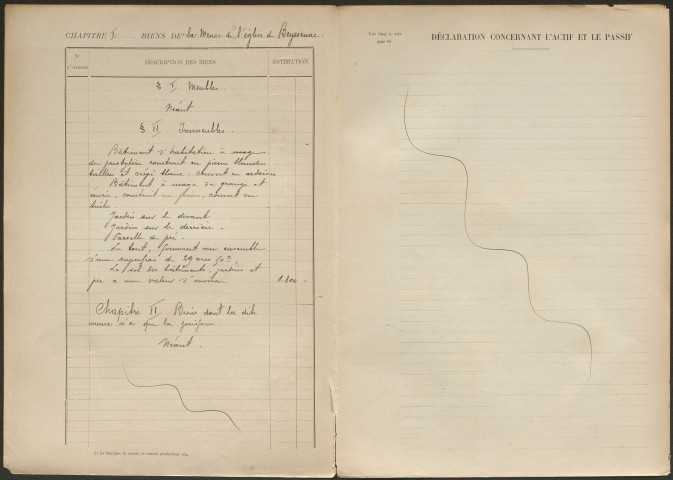 CHAPITRE I. BIENS DE la Mense de l'église de Beyssenac.
N° D'ORDRE
DESCRIPTION DES BIENS
ESTIMATION
§ I Meubles.
Néant
§ II Immeubles.
Bâtiment d'habitation à usage
de presbytère construit en pierre blanche
taillée et crépi blanc. couvert en ardoises
Bâtiment à usage de grange et
écurie, construit en pierre, couvert en
tuiles.
Jardin sur le devant
Jardin sur le derrière.
Parcelle de pré.
Le tout, formant un ensemble
d'une superficie de 29 ares
Le sol des bâtiments, jardins et
pré a une valeur d'environ 1.800
Chapitre II Biens dont la dite
mense n'a que la jouissance
Néant.
DÉCLARATION CONCERNANT L'ACTIF ET LE PASSIF